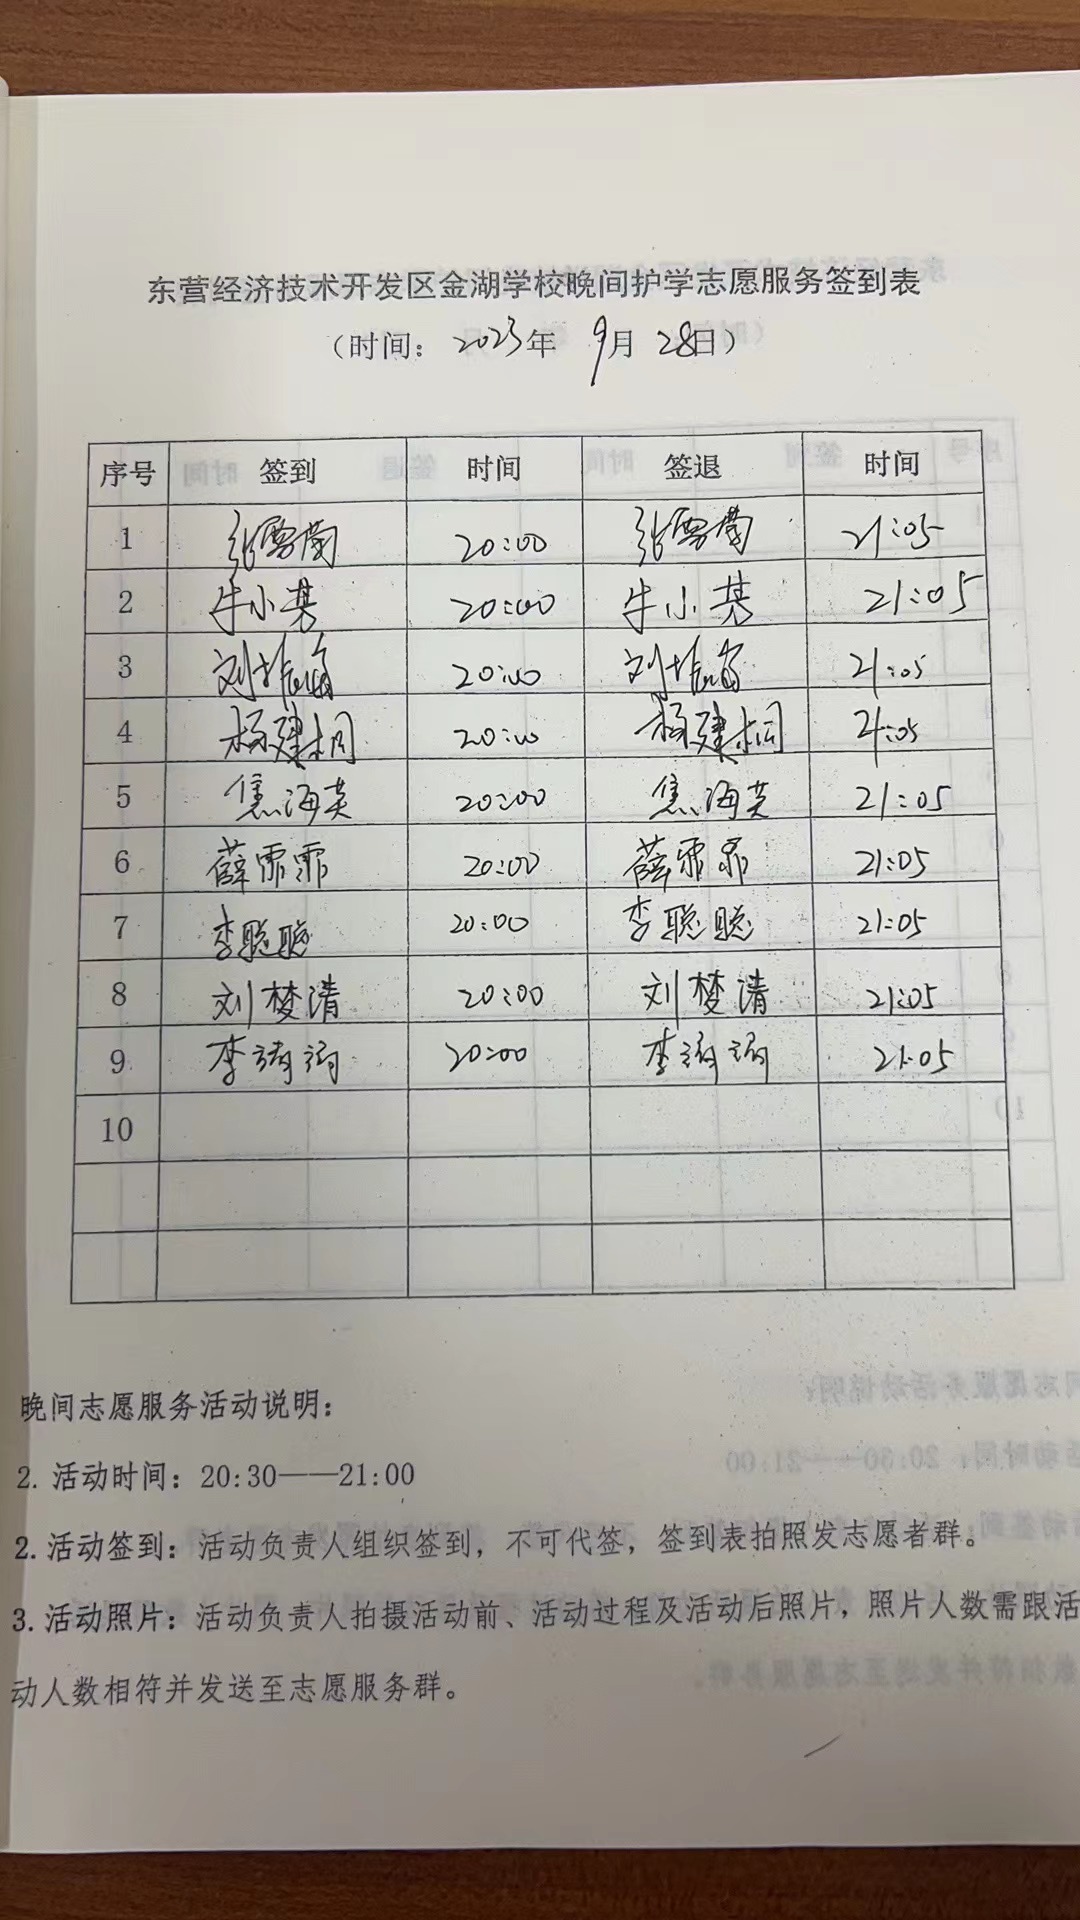 东营经济技术开发区金湖学校晚间护学志愿服务签到表
（时间：2023年 9月 28日）
序号 签到 时间 签退 时间
1 张雪菊 20:00 张雪菊 21:05
2 牛小慧 20:00 牛小慧 21:05
3 刘 20:00 刘 21:05
4 杨建桐 20:00 杨建桐 21:05
5 焦海英 20:00 焦海英 21:05
6 薛霏霏 20:00 薛霏霏 21:05
7 李聪聪 20:00 李聪聪 21:05
8 刘梦清 20:00 刘梦清 21:05
9 李 20:00 李 21:05
10
晚间志愿服务活动说明：
2. 活动时间：20:30——21:00
2. 活动签到：活动负责人组织签到，不可代签，签到表拍照发志愿者群。
3. 活动照片：活动负责人拍摄活动前、活动过程及活动后照片，照片人数需跟活
动人数相符并发送至志愿服务群。